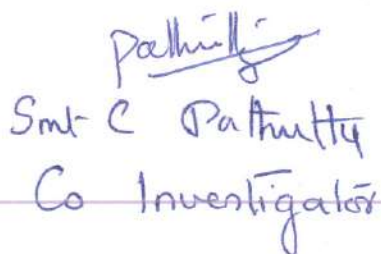 Pathutty
Smt C Pathutty
Co Investigator